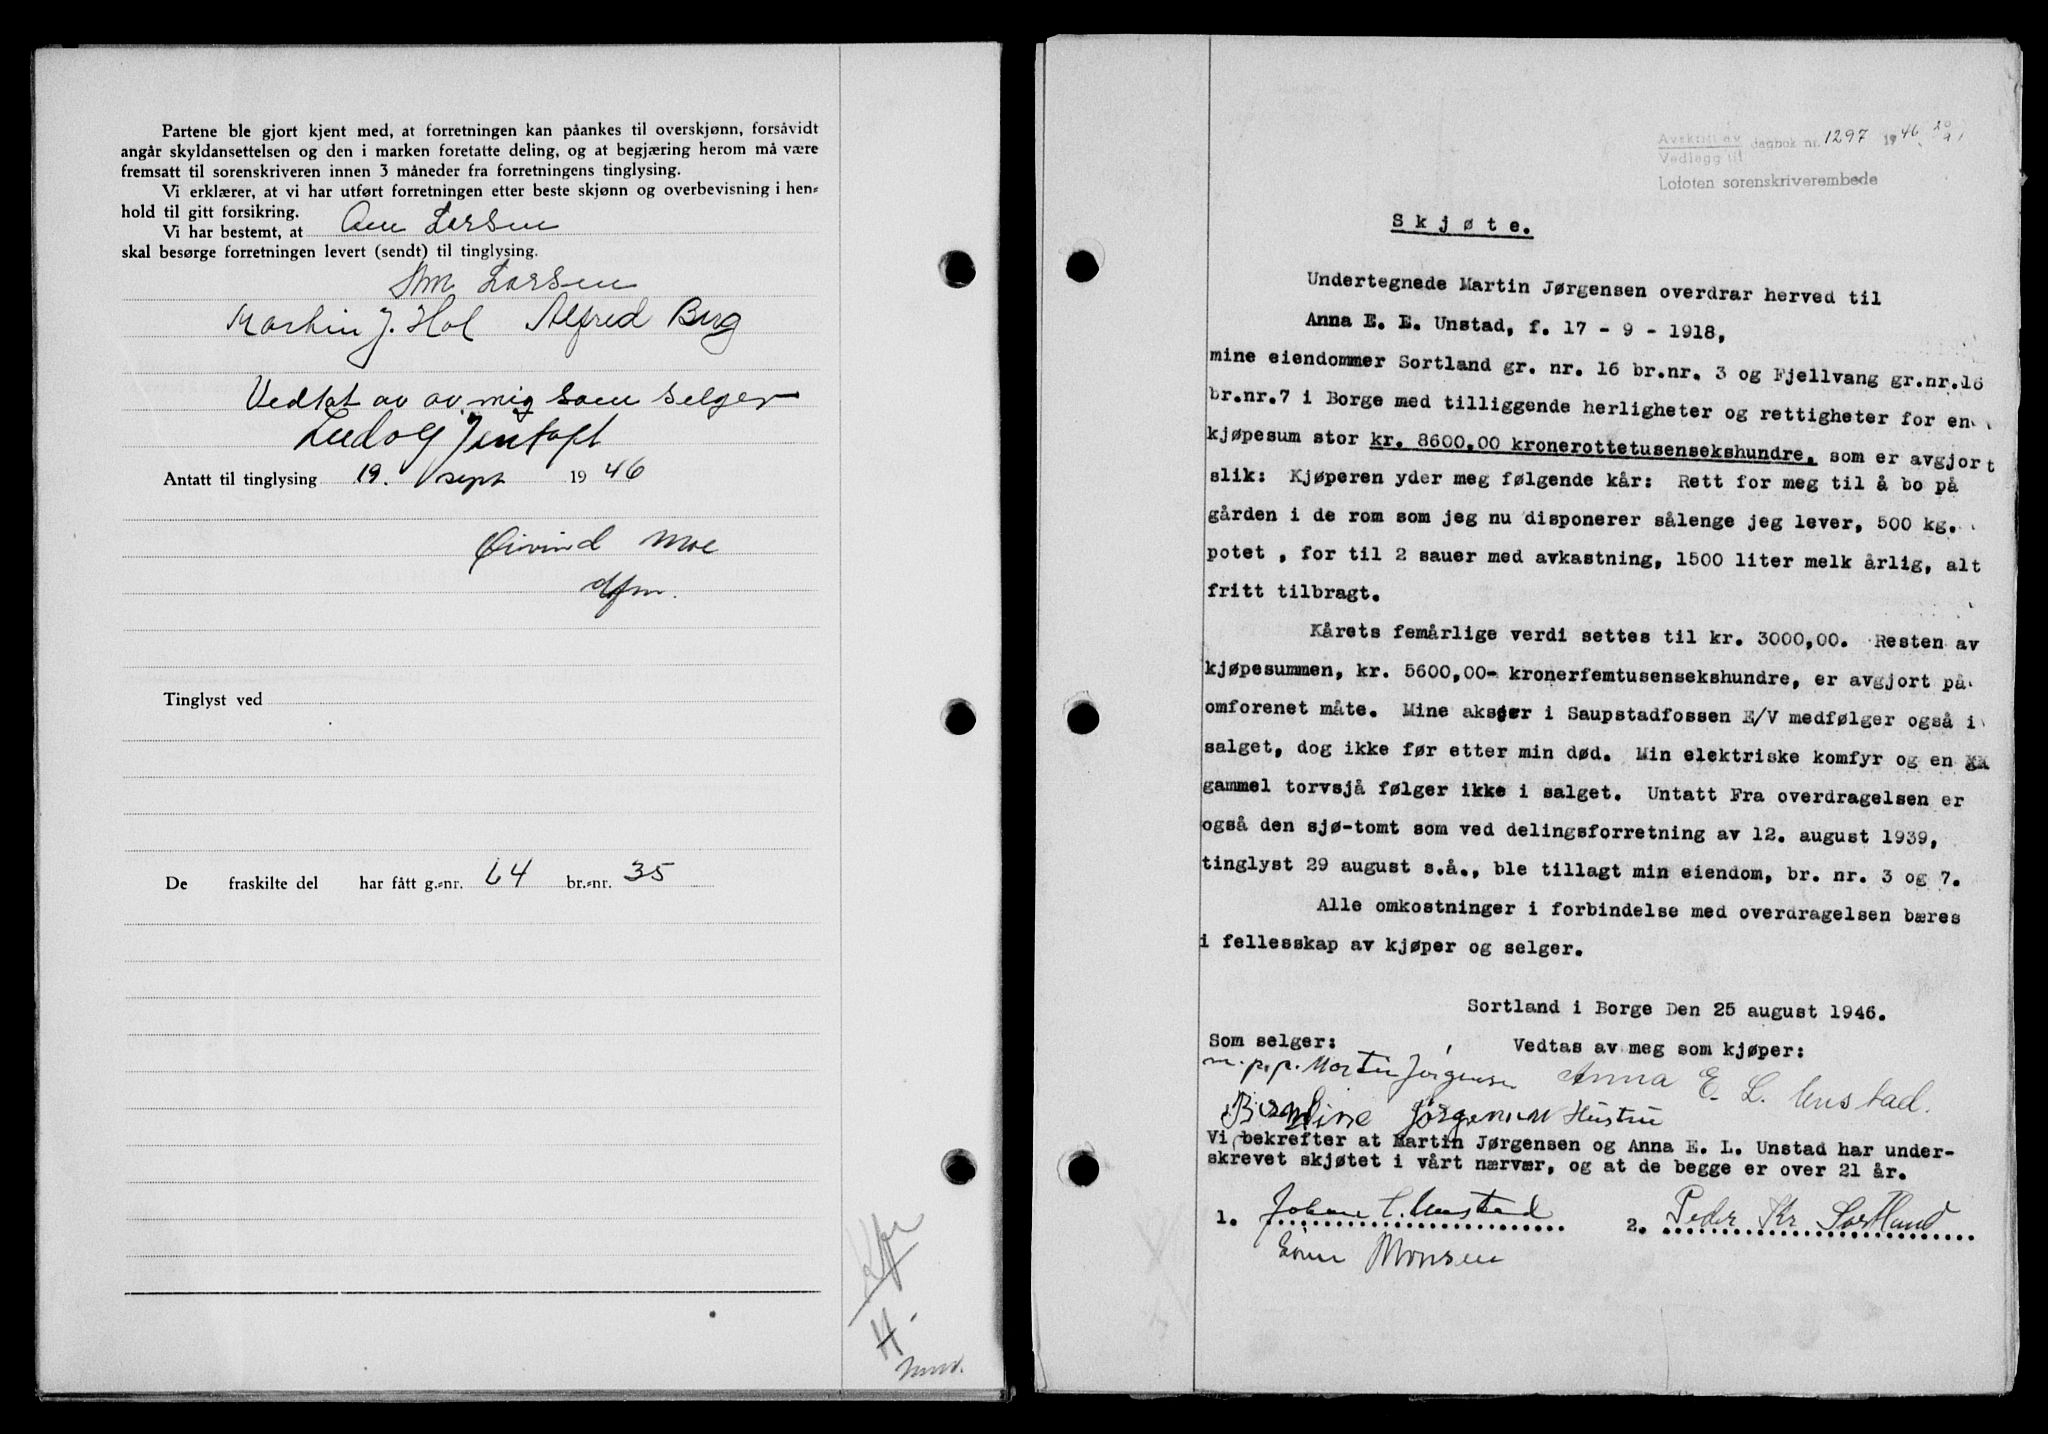 Partene ble gjort kjent med, at forretningen kan påankes til overskjønn, forsåvidt
angår skyldansettelsen og den i marken foretatte deling, og at begjæring herom må være
fremsatt til sorenskriveren innen 3 måneder fra forretningens tinglysing.
Vi erklærer, at vi har utført forretningen etter beste skjønn og overbevisning i hen-
hold til gitt forsikring.
Vi har bestemt, at Larsen
skal besørge forretningen levert (sendt) til tinglysing.
Larsen
Martin J. Hol Alfred Berg
Vedtat av av mig som selger
Ludvig Jentoft
Antatt til tinglysing 19. sept 1946
Øivind Moe
dfm.
Tinglyst ved
De fraskilte del har fått g.-nr. 64 br.-nr. 35
H.
Avskrift av
Vedlegg til dagbok nr. 1297 1946
Lofoten sorenskriverembede
Skjøte.
Undertegnede Martin Jørgensen overdrar herved til
Anna E. E. Unstad, f. 17 - 9 - 1918,
mine eiendommer Sortland gr. nr. 16 br.nr. 3 og Fjellvang gr.nr.16
br.nr.7 i Borge med tilliggende herligheter og rettigheter for en
kjøpesum stor kr. 8600,00 kronerottetusensekshundre, som er avgjort
slik: Kjøperen yder meg følgende kår: Rett for meg til å bo på
gården i de rom som jeg nu disponerer sålenge jeg lever, 500 kg.
potet , for til 2 sauer med avkastning, 1500 liter melk årlig, alt
fritt tilbragt.
Kårets femårlige verdi settes til kr. 3000,00. Resten av
kjøpesummen, kr. 5600,00- kronerfemtusensekshundre, er avgjort på
omforenet måte. Mine aksjer i Saupstadfossen E/V medfølger også i
salget, dog ikke før etter min død. Min elektriske komfyr og en
gammel torvsjå følger ikke i salget. Untatt Fra overdragelsen er
også den sjø-tomt som ved delingsforretning av 12. august 1939,
tinglyst 29 august s.å., ble tillagt min eiendom, br. nr. 3 og 7.
Alle omkostninger i forbindelse med overdragelsen bæres
i fellesskap av kjøper og selger.
Sortland i Borge Den 25 august 1946.
Som selger: Vedtas av meg som kjøper:
m.p.p. Martin Jørgensen Anna E. L. Unstad.
Jørgensen Hustru
Vi bekrefter at Martin Jørgensen og Anna E. L. Unstad har under-
skrevet skjøtet i vårt nærvær, og at de begge er over 21 år.
1. Johan C. Unstad 2. Peder Kr Sortland
Monsen